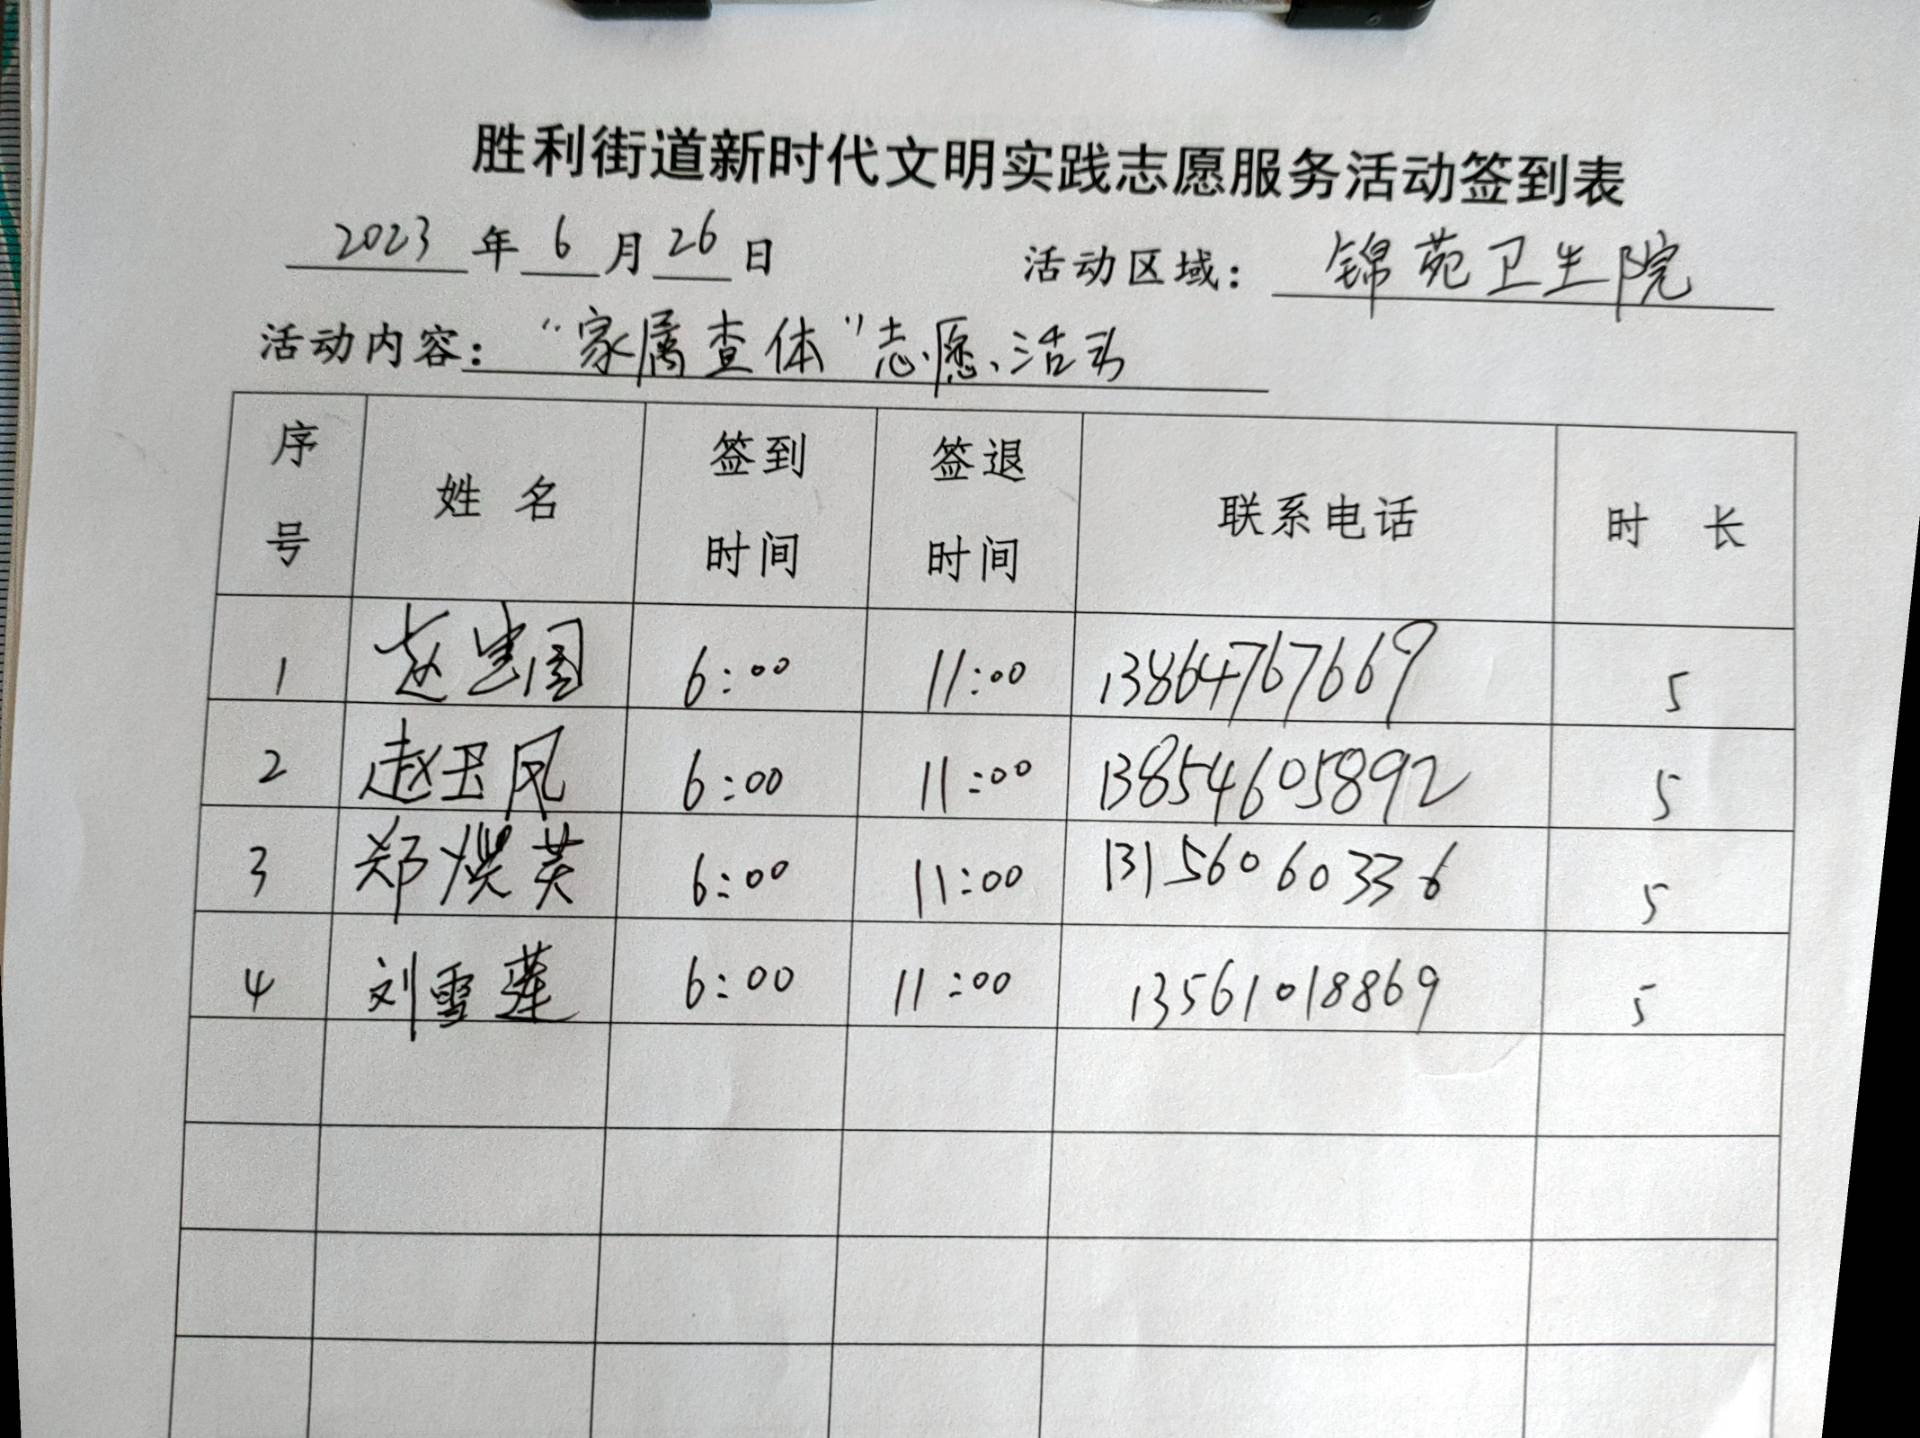 胜利街道新时代文明实践志愿服务活动签到表
2023 年 6 月 26 日 活动区域: 锦苑卫生院
活动内容: “家属查体”志愿活动
序号 姓名 签到时间 签退时间 联系电话 时长
1 赵 6:00 11:00 13864767669 5
2 赵玉凤 6:00 11:00 13854605892 5
3 郑焕英 6:00 11:00 13156060336 5
4 刘雪莲 6:00 11:00 13561018869 5